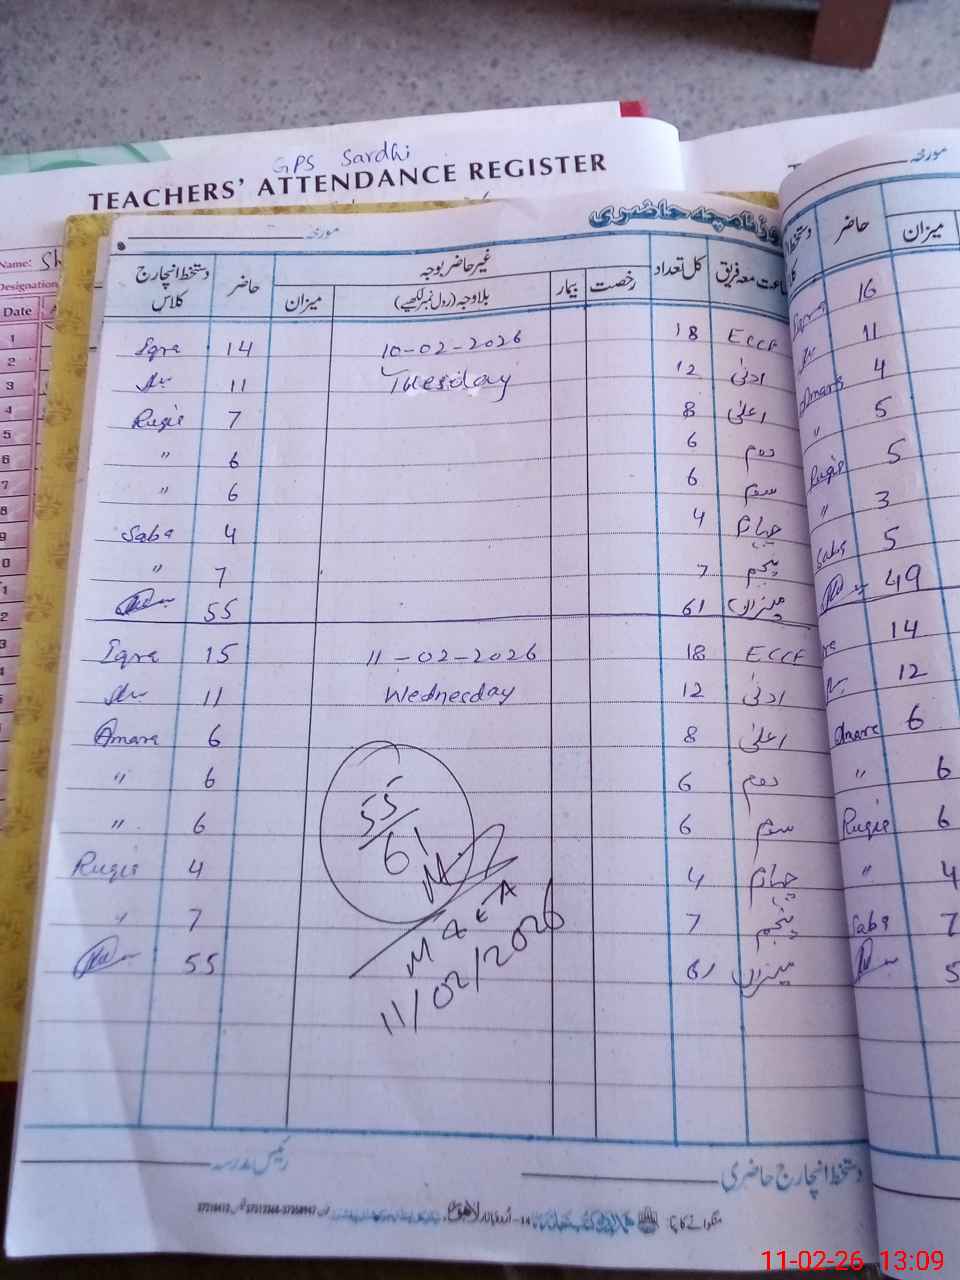 GPS Sardhi
TEACHERS' ATTENDANCE REGISTER
Name: Sh
Designation
Date
روزنامچہ حاضری
مورخہ
جماعت معہ فریق کل تعداد رخصت بیمار غیر حاضر بوجہ بلاوجہ (رول نمبر لکھیے) میزان حاضر دستخط انچارج کلاس
ECCE 18 10-02-2026 14 Iqra
ادنیٰ 12 Tuesday 11
اعلیٰ 8 7 Ruqia
دوم 6 6 "
سوم 6 6 "
چہارم 4 4 Saba
پنجم 7 7 "
میزان 61 55
ECCE 18 11-02-2026 15 Iqra
ادنیٰ 12 Wednesday 11
اعلیٰ 8 6 Amara
دوم 6 6 "
سوم 6 6 "
چہارم 4 4 Ruqia
پنجم 7 7 "
میزان 61 55
55/61
MZEA
11/02/2026
دستخط انچارج حاضری
رئیس مدرسہ
مورخہ
میزان حاضر
16
11
4 Amara
5 "
5 Ruqia
3 "
5 Saba
49
14
12
6 Amara
6 "
6 Ruqia
4 "
7 Saba
5
منگوانے کا پتہ:
لاہور
11-02-26 13:09